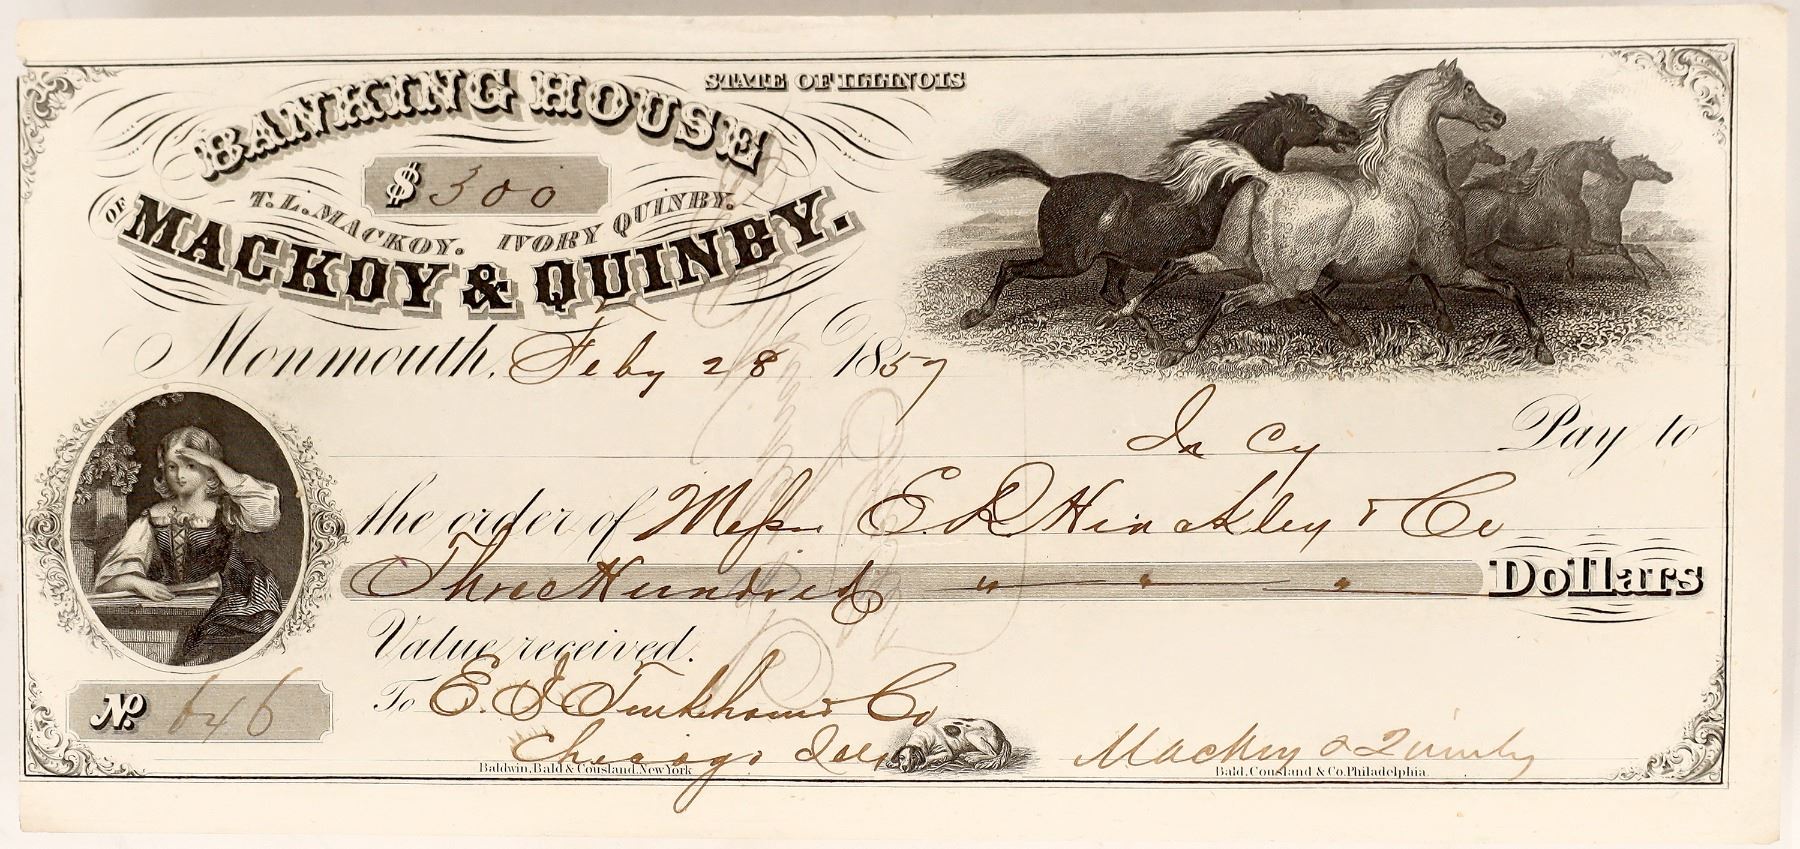 STATE OF ILLINOIS
BANKING HOUSE
$ 300
T. L. MACKOY. IVORY QUINBY.
OF MACKOY & QUINBY.
Monmouth, Feby 28 1857
In Cy Pay to
the order of Messrs E. R Hinckley & Co
Three Hundred " " " Dollars
Value received.
No. 646
To E. I. Tinkham & Co
Chicago Ills
Mackoy & Quinby
Baldwin, Bald & Cousland. New York
Bald, Cousland & Co. Philadelphia.